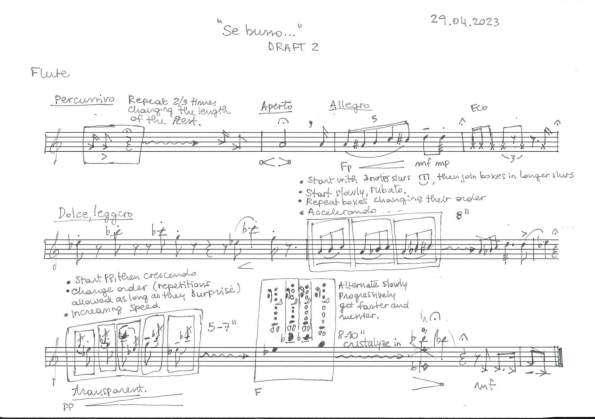 "Se busso..."
29.04.2023
DRAFT 2
Flute
Percussivo
Repeat 2/3 times
changing the length
of the rest.
Aperto
Allegro
Eco
5
3
Fp
mf mp
• Start with 2 notes slurs, then join boxes in longer slurs
• Start slowly, rubato.
• Repeat boxes changing their order
• Accelerando
Dolce, leggero
8"
• Start PP, then crescendo
• Change order (repetitions
allowed as long as they surprise)
• Increasing speed
5-7"
Alternate slowly
Progressively
get faster and
8-10"
cristalyze in
Transparent.
PP
F
mf